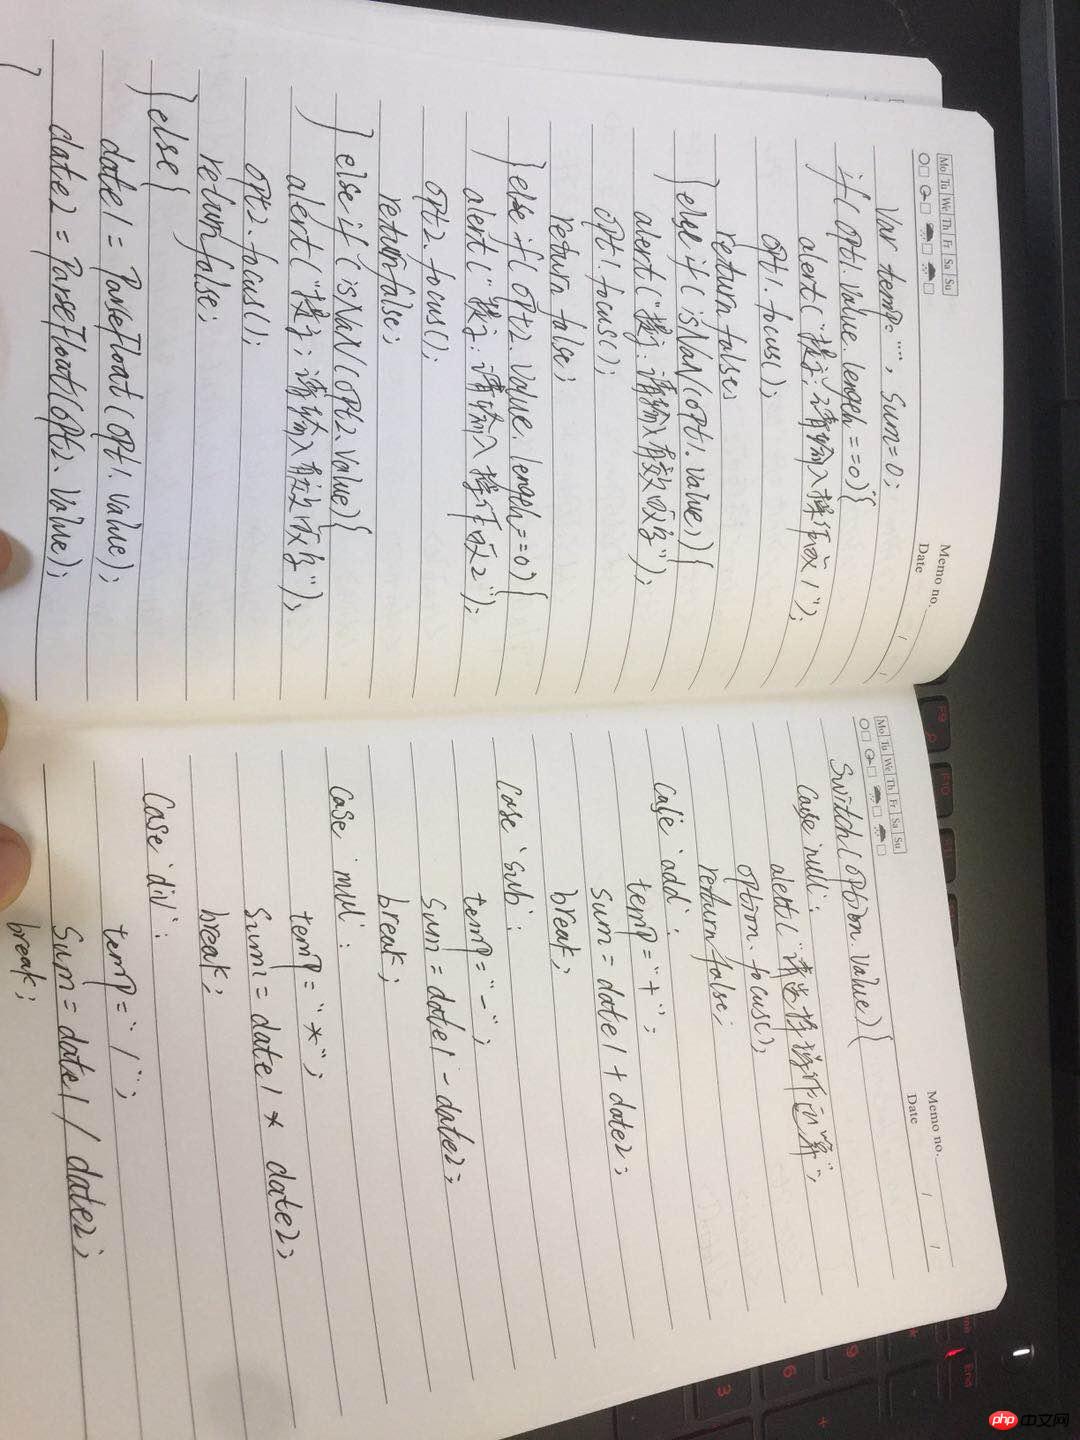 Mo Tu We Th Fr Sa Su
Memo no.
Date / /
Var temp="", Sum=0;
if(opt1.Value.length==0){
alert("提示:请输入操作数1");
opt1.focus();
return false;
}else if(isNaN(opt1.Value)){
alert("提示:请输入有效数字");
opt1.focus();
return false;
}else if(opt2.Value.length==0){
alert("提示:请输入操作数2");
opt2.focus();
return false;
}else if(isNaN(opt2.Value){
alert("提示:请输入有效数字");
opt2.focus();
return false;
}else{
date1=ParseFloat(opt1.Value);
date2=ParseFloat(opt2.Value);
}
Mo Tu We Th Fr Sa Su
Memo no.
Date / /
Switch(option.Value){
Case 'null':
alert("请选择操作运算");
option.focus();
return false;
case 'add':
temp="+";
Sum=date1+date2;
break;
Case 'sub':
temp="-";
Sum=date1-date2;
break;
Case 'mul':
temp="*";
Sum=date1*date2;
break;
Case 'div':
temp="/";
Sum=date1/date2;
break;
F9
F10
End
9
6
3
+
php 中文网